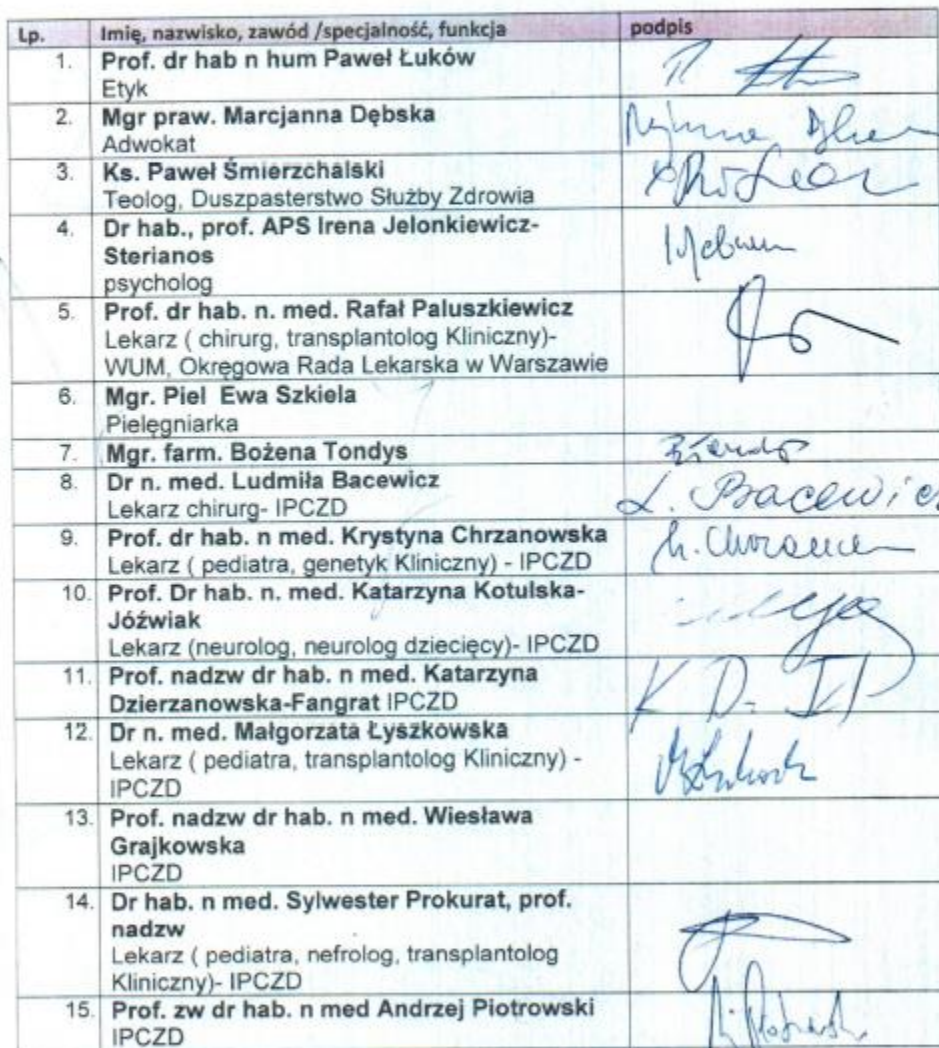 Lp. Imię, nazwisko, zawód /specjalność, funkcja podpis
1. Prof. dr hab n hum Paweł Łuków
Etyk
2. Mgr praw. Marcjanna Dębska
Adwokat
3. Ks. Paweł Śmierzchalski
Teolog, Duszpasterstwo Służby Zdrowia
4. Dr hab., prof. APS Irena Jelonkiewicz-
Sterianos
psycholog
5. Prof. dr hab. n. med. Rafał Paluszkiewicz
Lekarz ( chirurg, transplantolog Kliniczny)-
WUM, Okręgowa Rada Lekarska w Warszawie
6. Mgr. Piel Ewa Szkiela
Pielęgniarka
7. Mgr. farm. Bożena Tondys
8. Dr n. med. Ludmiła Bacewicz L. Bacewicz
Lekarz chirurg- IPCZD
9. Prof. dr hab. n med. Krystyna Chrzanowska
Lekarz ( pediatra, genetyk Kliniczny) - IPCZD
10. Prof. Dr hab. n. med. Katarzyna Kotulska-
Jóźwiak
Lekarz (neurolog, neurolog dziecięcy)- IPCZD
11. Prof. nadzw dr hab. n med. Katarzyna
Dzierzanowska-Fangrat IPCZD
12. Dr n. med. Małgorzata Łyszkowska
Lekarz ( pediatra, transplantolog Kliniczny) -
IPCZD
13. Prof. nadzw dr hab. n med. Wiesława
Grajkowska
IPCZD
14. Dr hab. n med. Sylwester Prokurat, prof.
nadzw
Lekarz ( pediatra, nefrolog, transplantolog
Kliniczny)- IPCZD
15. Prof. zw dr hab. n med Andrzej Piotrowski
IPCZD